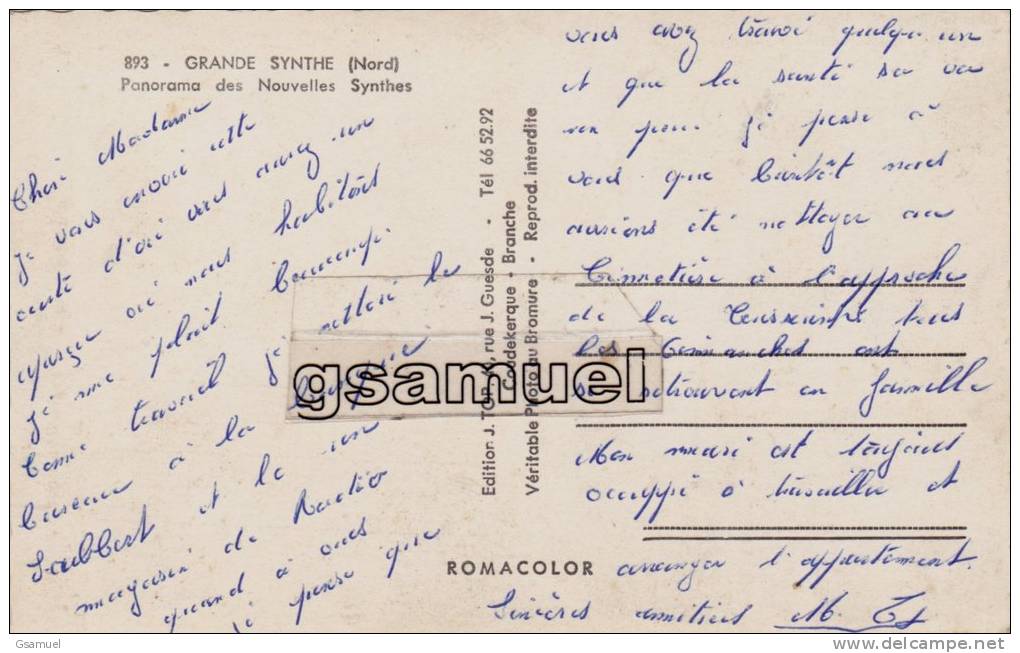 893 - GRANDE SYNTHE (Nord)
Panorama des Nouvelles Synthes
Cher Madame
je vous envoie cette
carte d'où vous aurez un
où nous habitons
je me plait beaucoup
comme travail j'ai nettoié le
bureau à la banque
Joubbert et le un
magasin de Radio
quand à vous
je pense que
vous avez trouvé quelqu'un
et que la santé sa va
peu j' pense à
vous que bientôt nous
aurions été nettoyer au
Cimetière à l'approche
de la Toussaint tous
les Dimanches on
se retrouvent en famille
Mon mari est toujours
occuppé à travailler et
arranger l'appartement.
Sincères amitiés M.
Edition J. TOP, rue J. Guesde - Tél 66 52.92
Coudekerque - Branche
Véritable Photo au Bromure - Reprod. interdite
ROMACOLOR
gsamuel
Gsamuel
delcampe.net